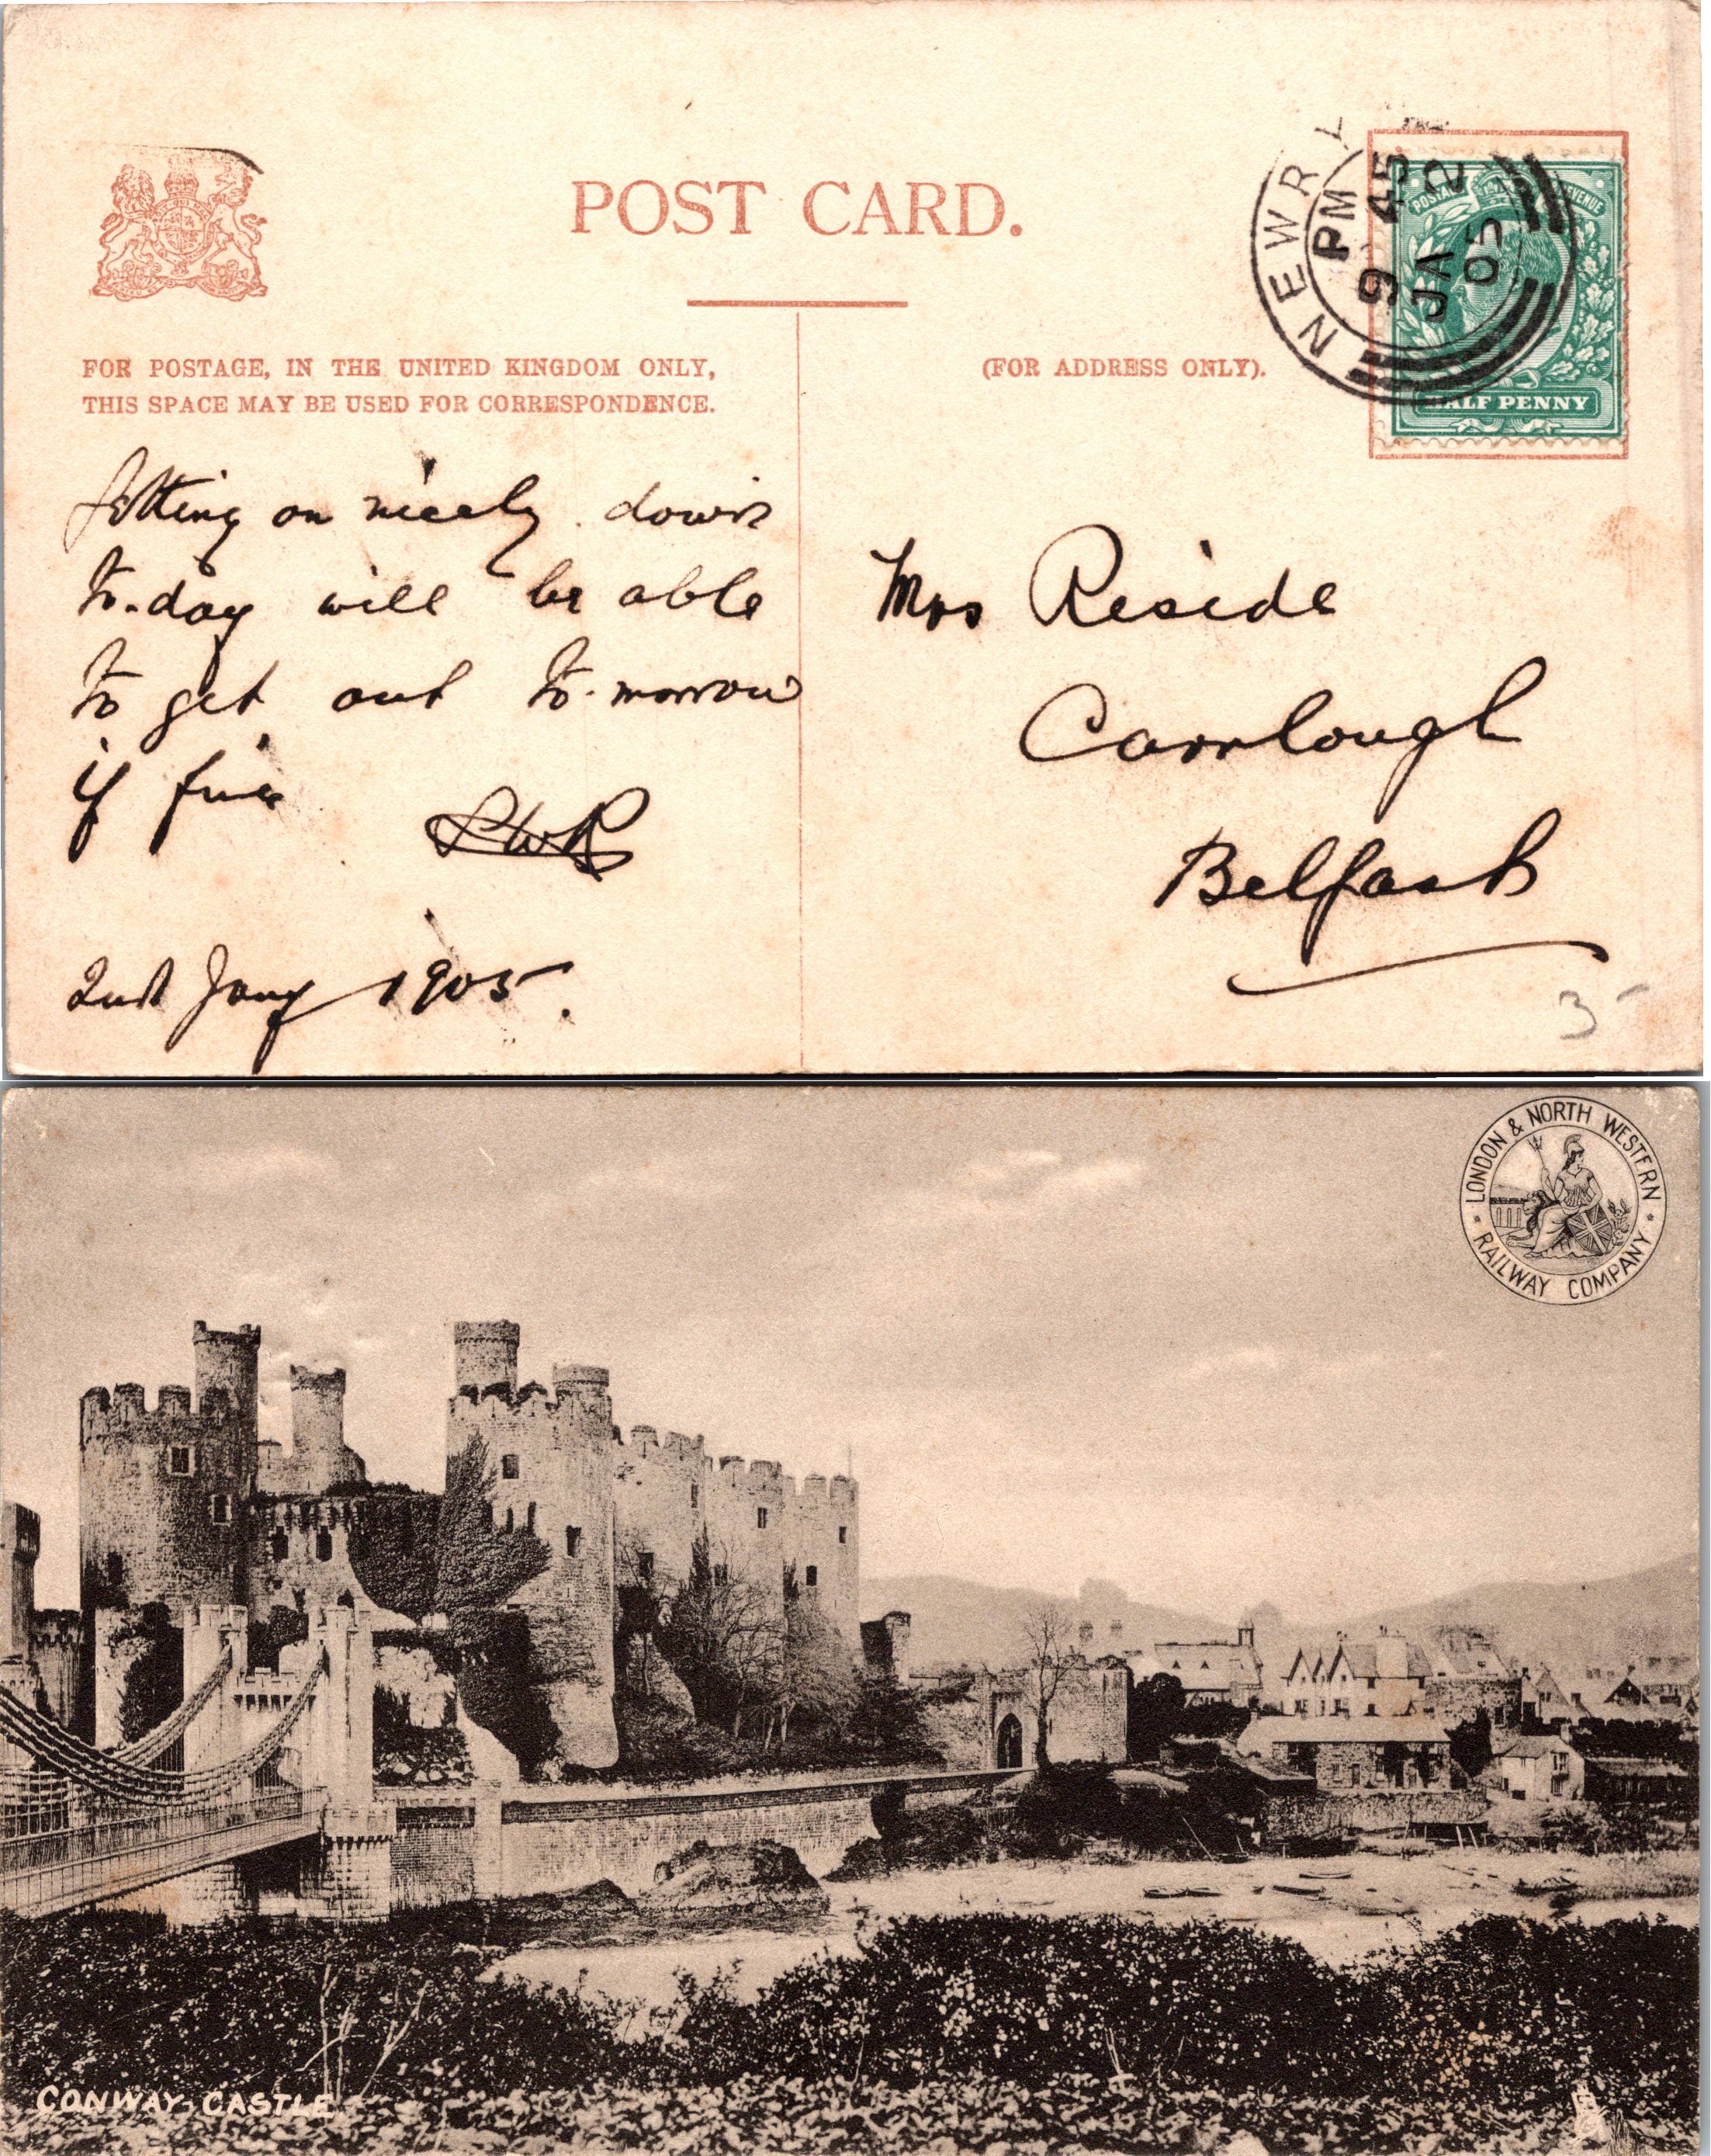 POST CARD.
FOR POSTAGE, IN THE UNITED KINGDOM ONLY,
THIS SPACE MAY BE USED FOR CORRESPONDENCE.
(FOR ADDRESS ONLY).
NEWRY
9 45 PM
JA 2
05
POSTAGE REVENUE
HALF PENNY
Getting on nicely. down
to-day will be able
to get out to-morrow
if fine
2nd Jany 1905.
Mrs Reside
Carrlough
Belfast
3
LONDON & NORTH WESTERN
RAILWAY COMPANY
CONWAY-CASTLE